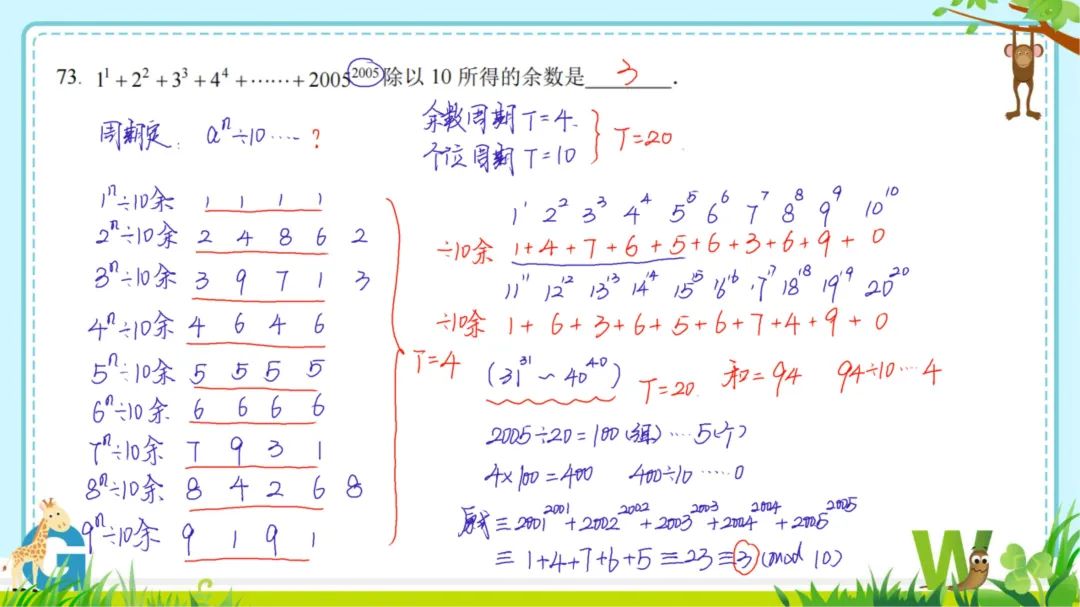 73. 1¹+2²+3³+4⁴+……+2005²⁰⁰⁵除以 10 所得的余数是 3 .
周期定: aⁿ÷10 ···· ?
余数周期 T=4.
个位周期 T=10
T=20.
1ⁿ÷10余 1 1 1 1
2ⁿ÷10余 2 4 8 6 2
3ⁿ÷10余 3 9 7 1 3
4ⁿ÷10余 4 6 4 6
5ⁿ÷10余 5 5 5 5
6ⁿ÷10余 6 6 6 6
7ⁿ÷10余 7 9 3 1
8ⁿ÷10余 8 4 2 6 8
9ⁿ÷10余 9 1 9 1
T=4
1¹ 2² 3³ 4⁴ 5⁵ 6⁶ 7⁷ 8⁸ 9⁹ 10¹⁰
÷10余 1+4+7+6+5+6+3+6+9+0
11¹¹ 12¹² 13¹³ 14¹⁴ 15¹⁵ 16¹⁶ 17¹⁷ 18¹⁸ 19¹⁹ 20²⁰
÷10余 1+6+3+6+5+6+7+4+9+0
(31³¹ ~ 40⁴⁰) T=20. 和=94 94÷10 ···· 4
2005÷20=100(组) ···· 5(个)
4×100=400 400÷10 ····· 0
原式≡2001²⁰⁰¹+2002²⁰⁰²+2003²⁰⁰³+2004²⁰⁰⁴+2005²⁰⁰⁵
≡1+4+7+6+5≡23≡3(mod 10)
G
W